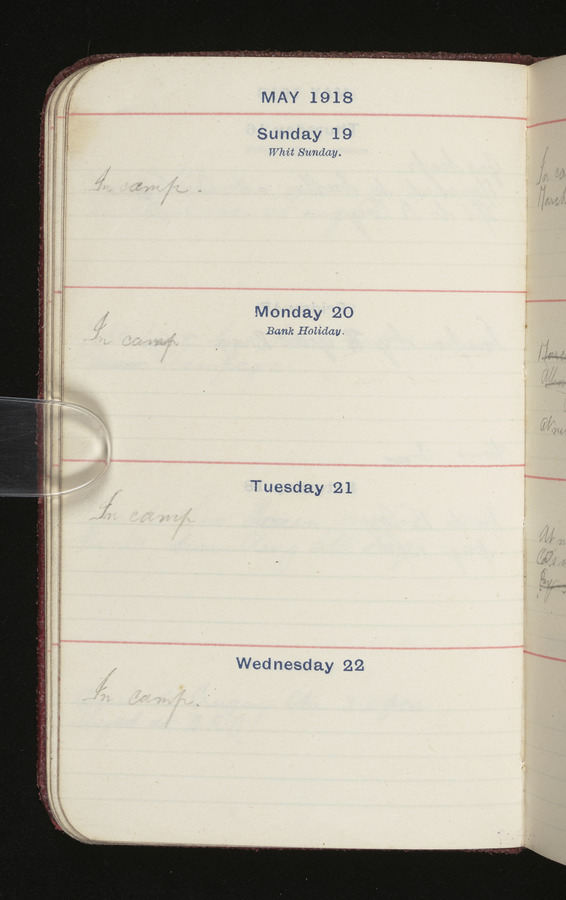 MAY 1918
Sunday 19
Whit Sunday.
In camp.
Monday 20
Bank Holiday.
In camp
Tuesday 21
In camp
Wednesday 22
In camp.